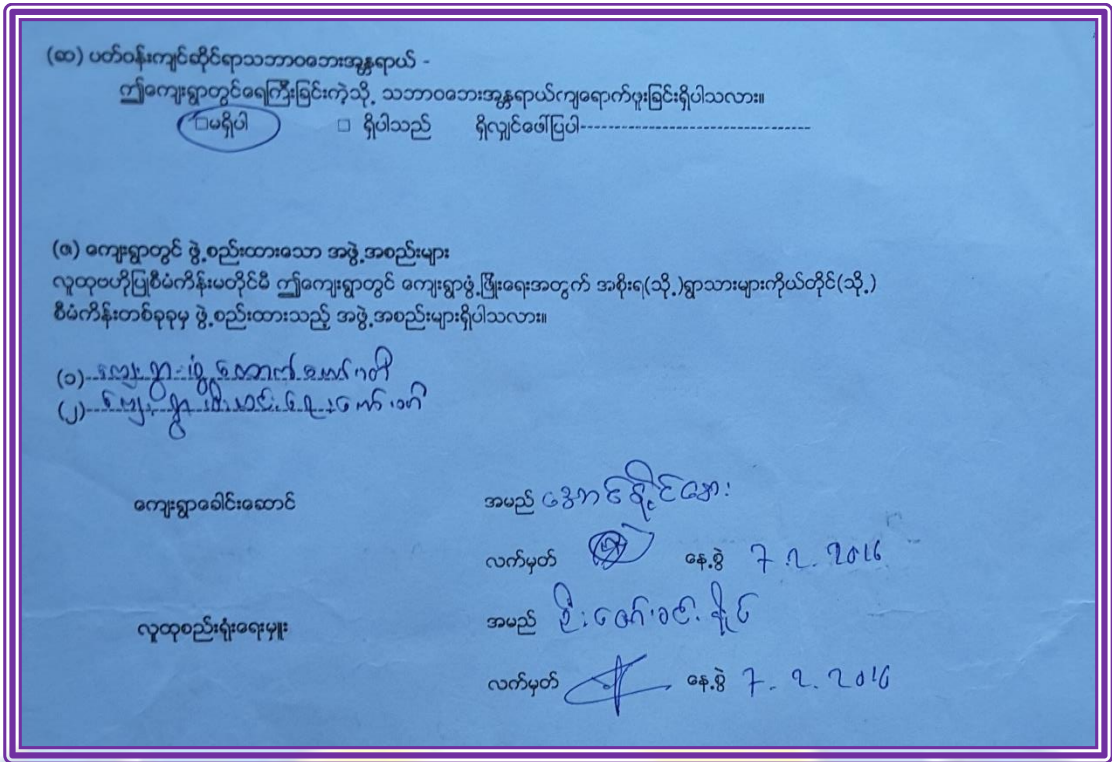 (ဆ) ပတ်ဝန်းကျင်ဆိုင်ရာသဘာဝဘေးအန္တရာယ် -
ဤကျေးရွာတွင်ရေကြီးခြင်းကဲ့သို့ သဘာဝဘေးအန္တရာယ်ကျရောက်ဖူးခြင်းရှိပါသလား။
□မရှိပါ □ ရှိပါသည် ရှိလျှင်ဖော်ပြပါ---------------------------------
(ဇ) ကျေးရွာတွင် ဖွဲ့စည်းထားသော အဖွဲ့အစည်းများ
လူထုဗဟိုပြုစီမံကိန်းမတိုင်မီ ဤကျေးရွာတွင် ကျေးရွာဖွံ့ဖြိုးရေးအတွက် အစိုးရ(သို့)ရွာသားများကိုယ်တိုင်(သို့)
စီမံကိန်းတစ်ခုခုမှ ဖွဲ့စည်းထားသည့် အဖွဲ့အစည်းများရှိပါသလား။
(၁) ကျေးရွာ ထောက် ကော်မတီ
(၂) ကျေးရွာ ရေး ကော်မတီ
ကျေးရွာခေါင်းဆောင် အမည် အောင်နိုင်ဆေး
လက်မှတ် နေ့စွဲ 7.2.2016
လူထုစည်းရုံးရေးမှူး အမည် ဦးဇော်ဝင်းနိုင်
လက်မှတ် နေ့စွဲ 7.2.2016